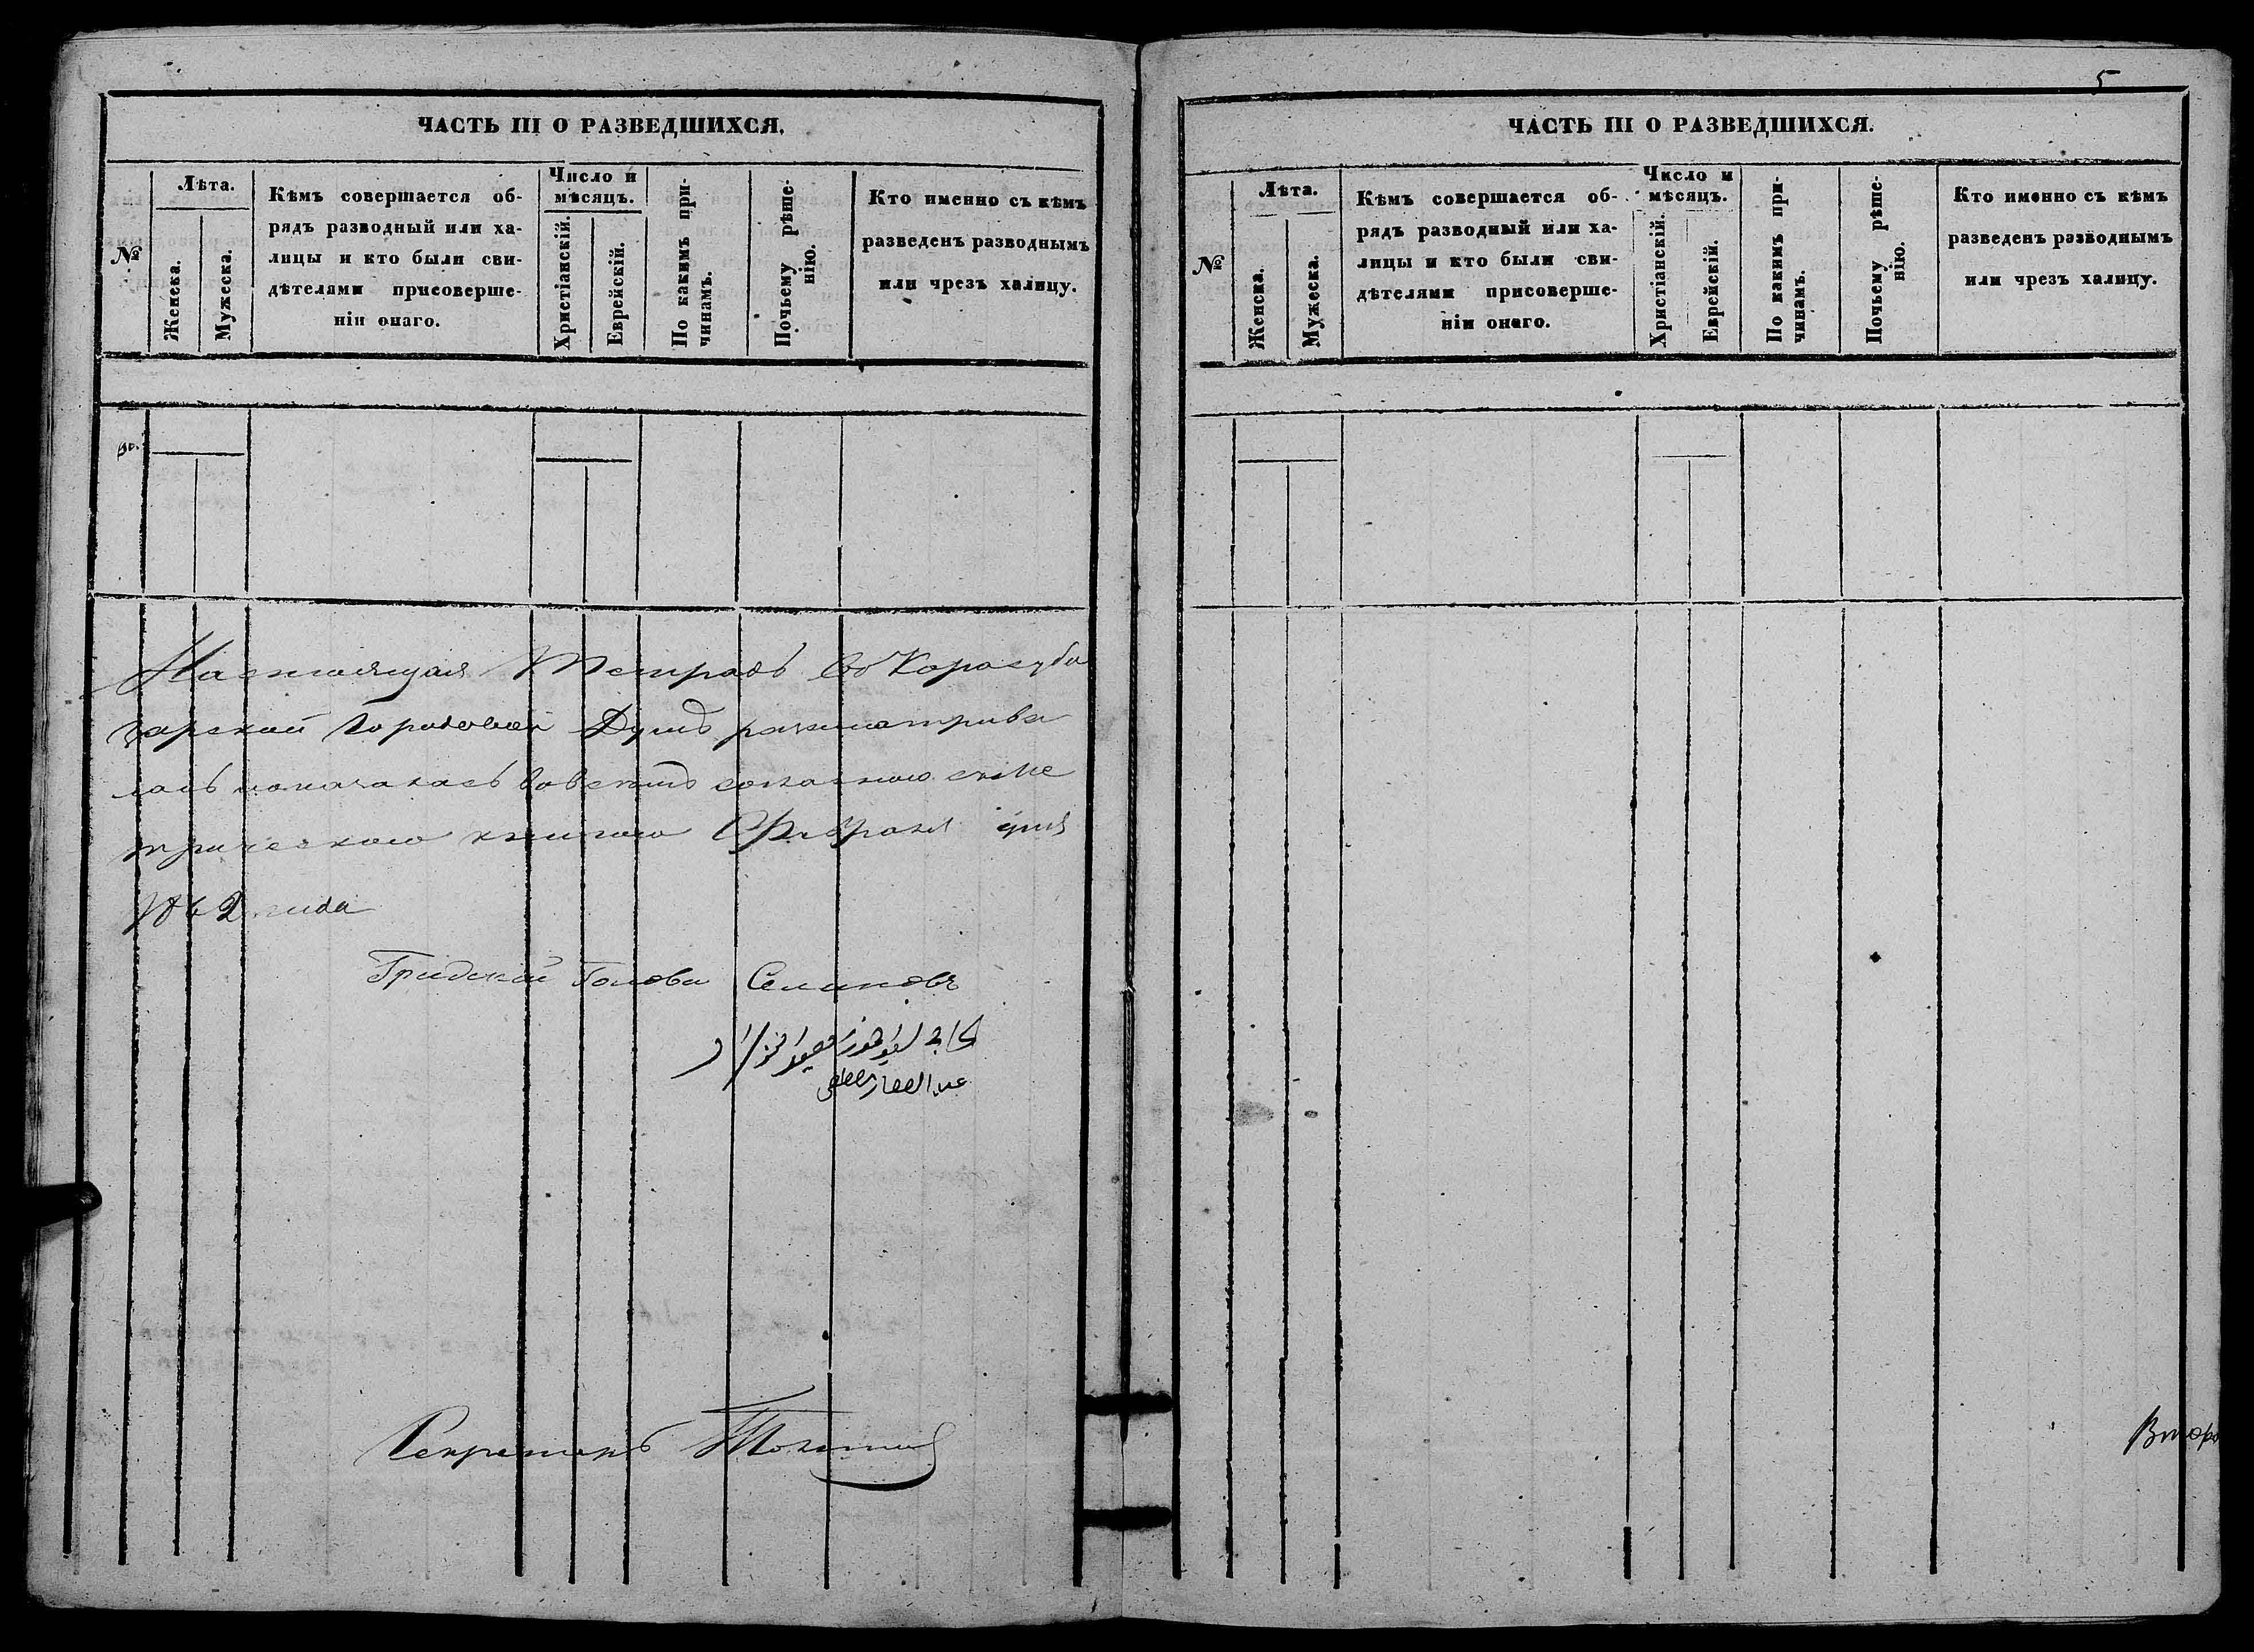 ЧАСТЬ III О РАЗВЕДШИХСЯ.
№
Лѣта.
Женска.
Мужеска.
Кѣмъ совершается об-
рядъ разводный или ха-
лицы и кто были сви-
дѣтелями присоверше-
ніи онаго.
Число и
мѣсяцъ.
Христіанскій.
Еврейскій.
По какимъ при-
чинамъ.
Почьему рѣше-
нію.
Кто именно съ кѣмъ
разведенъ разводнымъ
или чрезъ халицу.
Настоящая Тетрадь въ Карасуба
зарской Городовой Думѣ разсматрива
лась
метрическою книгою Февраля дня
1862 года
Градской Голова
Секретарь
5
ЧАСТЬ III О РАЗВЕДШИХСЯ.
№
Лѣта.
Женска.
Мужеска.
Кѣмъ совершается об-
рядъ разводный или ха-
лицы и кто были сви-
дѣтелями присоверше-
ніи онаго.
Число и
мѣсяцъ.
Христіанскій.
Еврейскій.
По какимъ при-
чинамъ.
Почьему рѣше-
нію.
Кто именно съ кѣмъ
разведенъ разводнымъ
или чрезъ халицу.
Второ